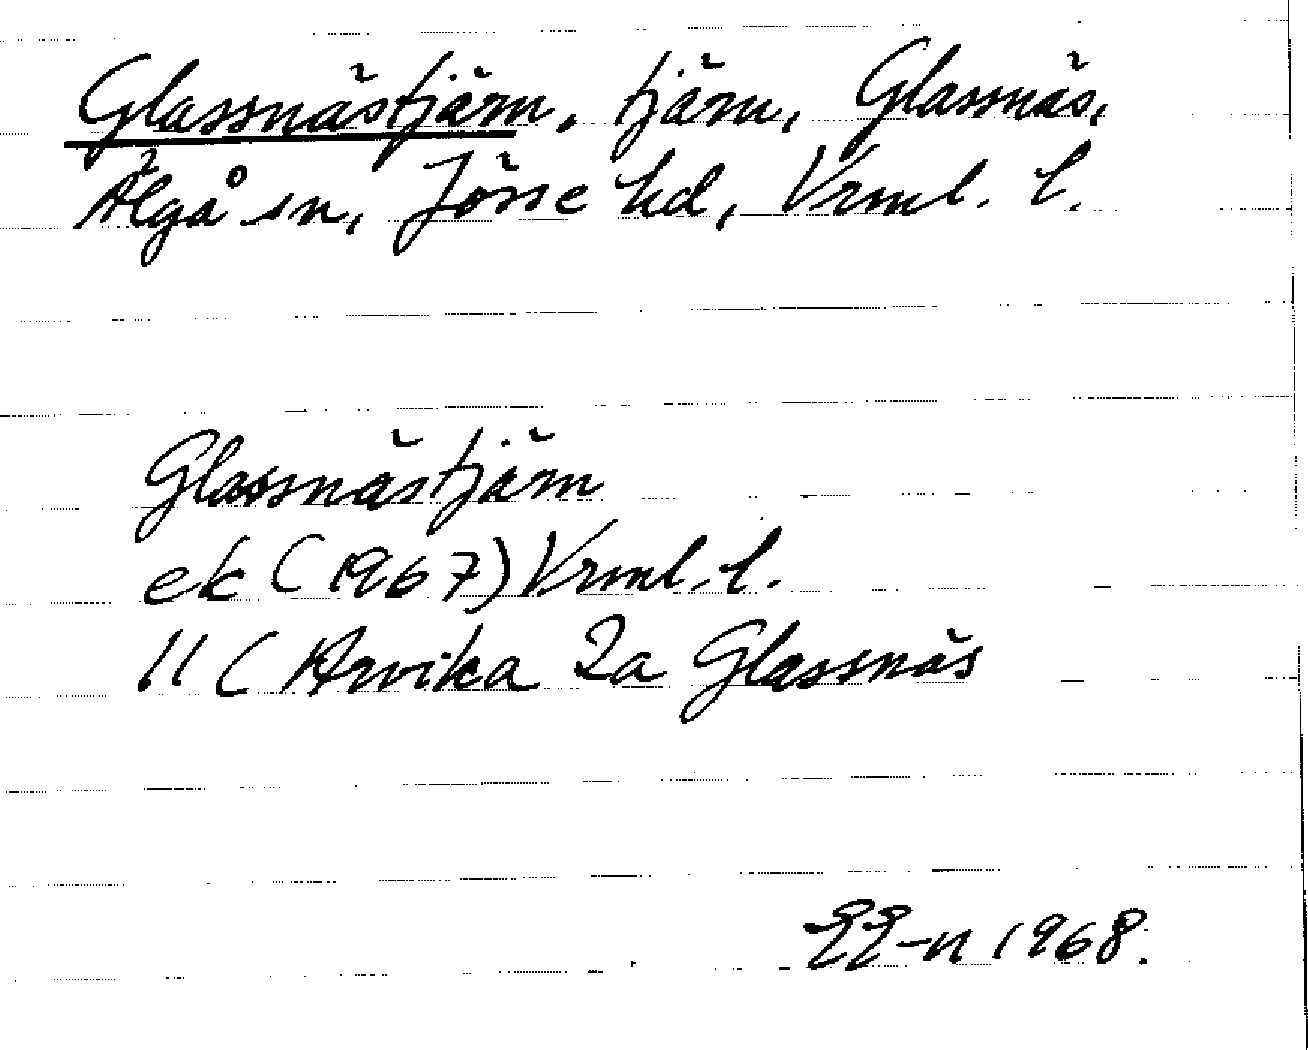 Glassnästjärn, tjärn, Glassnäs,
Älgå sn, Jösse hd, Vrml. l.
Glassnästjärn
ek (1967) Vrml. l.
11 C Arvika 2a Glassnäs
EE-n 1968.